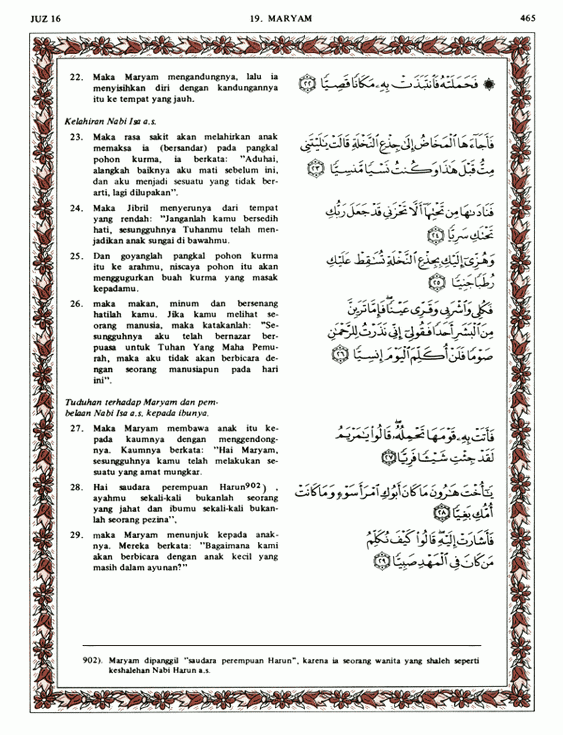 JUZ 16
19. MARYAM
465
22. Maka Maryam mengandungnya, lalu ia
menyisihkan diri dengan kandungannya
itu ke tempat yang jauh.
۞ فَحَمَلَتْهُ فَانتَبَذَتْ بِهِ مَكَانًا قَصِيًّا ﴿٢٢﴾
Kelahiran Nabi Isa a.s.
23. Maka rasa sakit akan melahirkan anak
memaksa ia (bersandar) pada pangkal
pohon kurma, ia berkata: "Aduhai,
alangkah baiknya aku mati sebelum ini,
dan aku menjadi sesuatu yang tidak ber-
arti, lagi dilupakan".
فَأَجَاءَهَا الْمَخَاضُ إِلَىٰ جِذْعِ النَّخْلَةِ قَالَتْ يَٰلَيْتَنِي
مِتُّ قَبْلَ هَٰذَا وَكُنتُ نَسْيًا مَّنسِيًّا ﴿٢٣﴾
24. Maka Jibril menyerunya dari tempat
yang rendah: "Janganlah kamu bersedih
hati, sesungguhnya Tuhanmu telah men-
jadikan anak sungai di bawahmu.
فَنَادَىٰهَا مِن تَحْتِهَا أَلَّا تَحْزَنِي قَدْ جَعَلَ رَبُّكِ
تَحْتَكِ سَرِيًّا ﴿٢٤﴾
25. Dan goyanglah pangkal pohon kurma
itu ke arahmu, niscaya pohon itu akan
menggugurkan buah kurma yang masak
kepadamu.
وَهُزِّي إِلَيْكِ بِجِذْعِ النَّخْلَةِ تُسَٰقِطْ عَلَيْكِ
رُطَبًا جَنِيًّا ﴿٢٥﴾
26. maka makan, minum dan bersenang
hatilah kamu. Jika kamu melihat se-
orang manusia, maka katakanlah: "Se-
sungguhnya aku telah bernazar ber-
puasa untuk Tuhan Yang Maha Pemu-
rah, maka aku tidak akan berbicara de-
ngan seorang manusiapun pada hari
ini".
فَكُلِي وَاشْرَبِي وَقَرِّي عَيْنًا ۖ فَإِمَّا تَرَيِنَّ
مِنَ الْبَشَرِ أَحَدًا فَقُولِي إِنِّي نَذَرْتُ لِلرَّحْمَٰنِ
صَوْمًا فَلَنْ أُكَلِّمَ الْيَوْمَ إِنسِيًّا ﴿٢٦﴾
Tuduhan terhadap Maryam dan pem-
belaan Nabi Isa a.s, kepada ibunya.
27. Maka Maryam membawa anak itu ke-
pada kaumnya dengan menggendong-
nya. Kaumnya berkata: "Hai Maryam,
sesungguhnya kamu telah melakukan se-
suatu yang amat mungkar.
فَأَتَتْ بِهِ قَوْمَهَا تَحْمِلُهُ ۖ قَالُوا يَٰمَرْيَمُ
لَقَدْ جِئْتِ شَيْئًا فَرِيًّا ﴿٢٧﴾
28. Hai saudara perempuan Harun902) ,
ayahmu sekali-kali bukanlah seorang
yang jahat dan ibumu sekali-kali bukan-
lah seorang pezina",
يَٰٓأُخْتَ هَٰرُونَ مَا كَانَ أَبُوكِ امْرَأَ سَوْءٍ وَمَا كَانَتْ
أُمُّكِ بَغِيًّا ﴿٢٨﴾
29. maka Maryam menunjuk kepada anak-
nya. Mereka berkata: "Bagaimana kami
akan berbicara dengan anak kecil yang
masih dalam ayunan?"
فَأَشَارَتْ إِلَيْهِ ۖ قَالُوا كَيْفَ نُكَلِّمُ
مَن كَانَ فِي الْمَهْدِ صَبِيًّا ﴿٢٩﴾
902). Maryam dipanggil "saudara perempuan Harun", karena ia seorang wanita yang shaleh seperti
keshalehan Nabi Harun a.s.